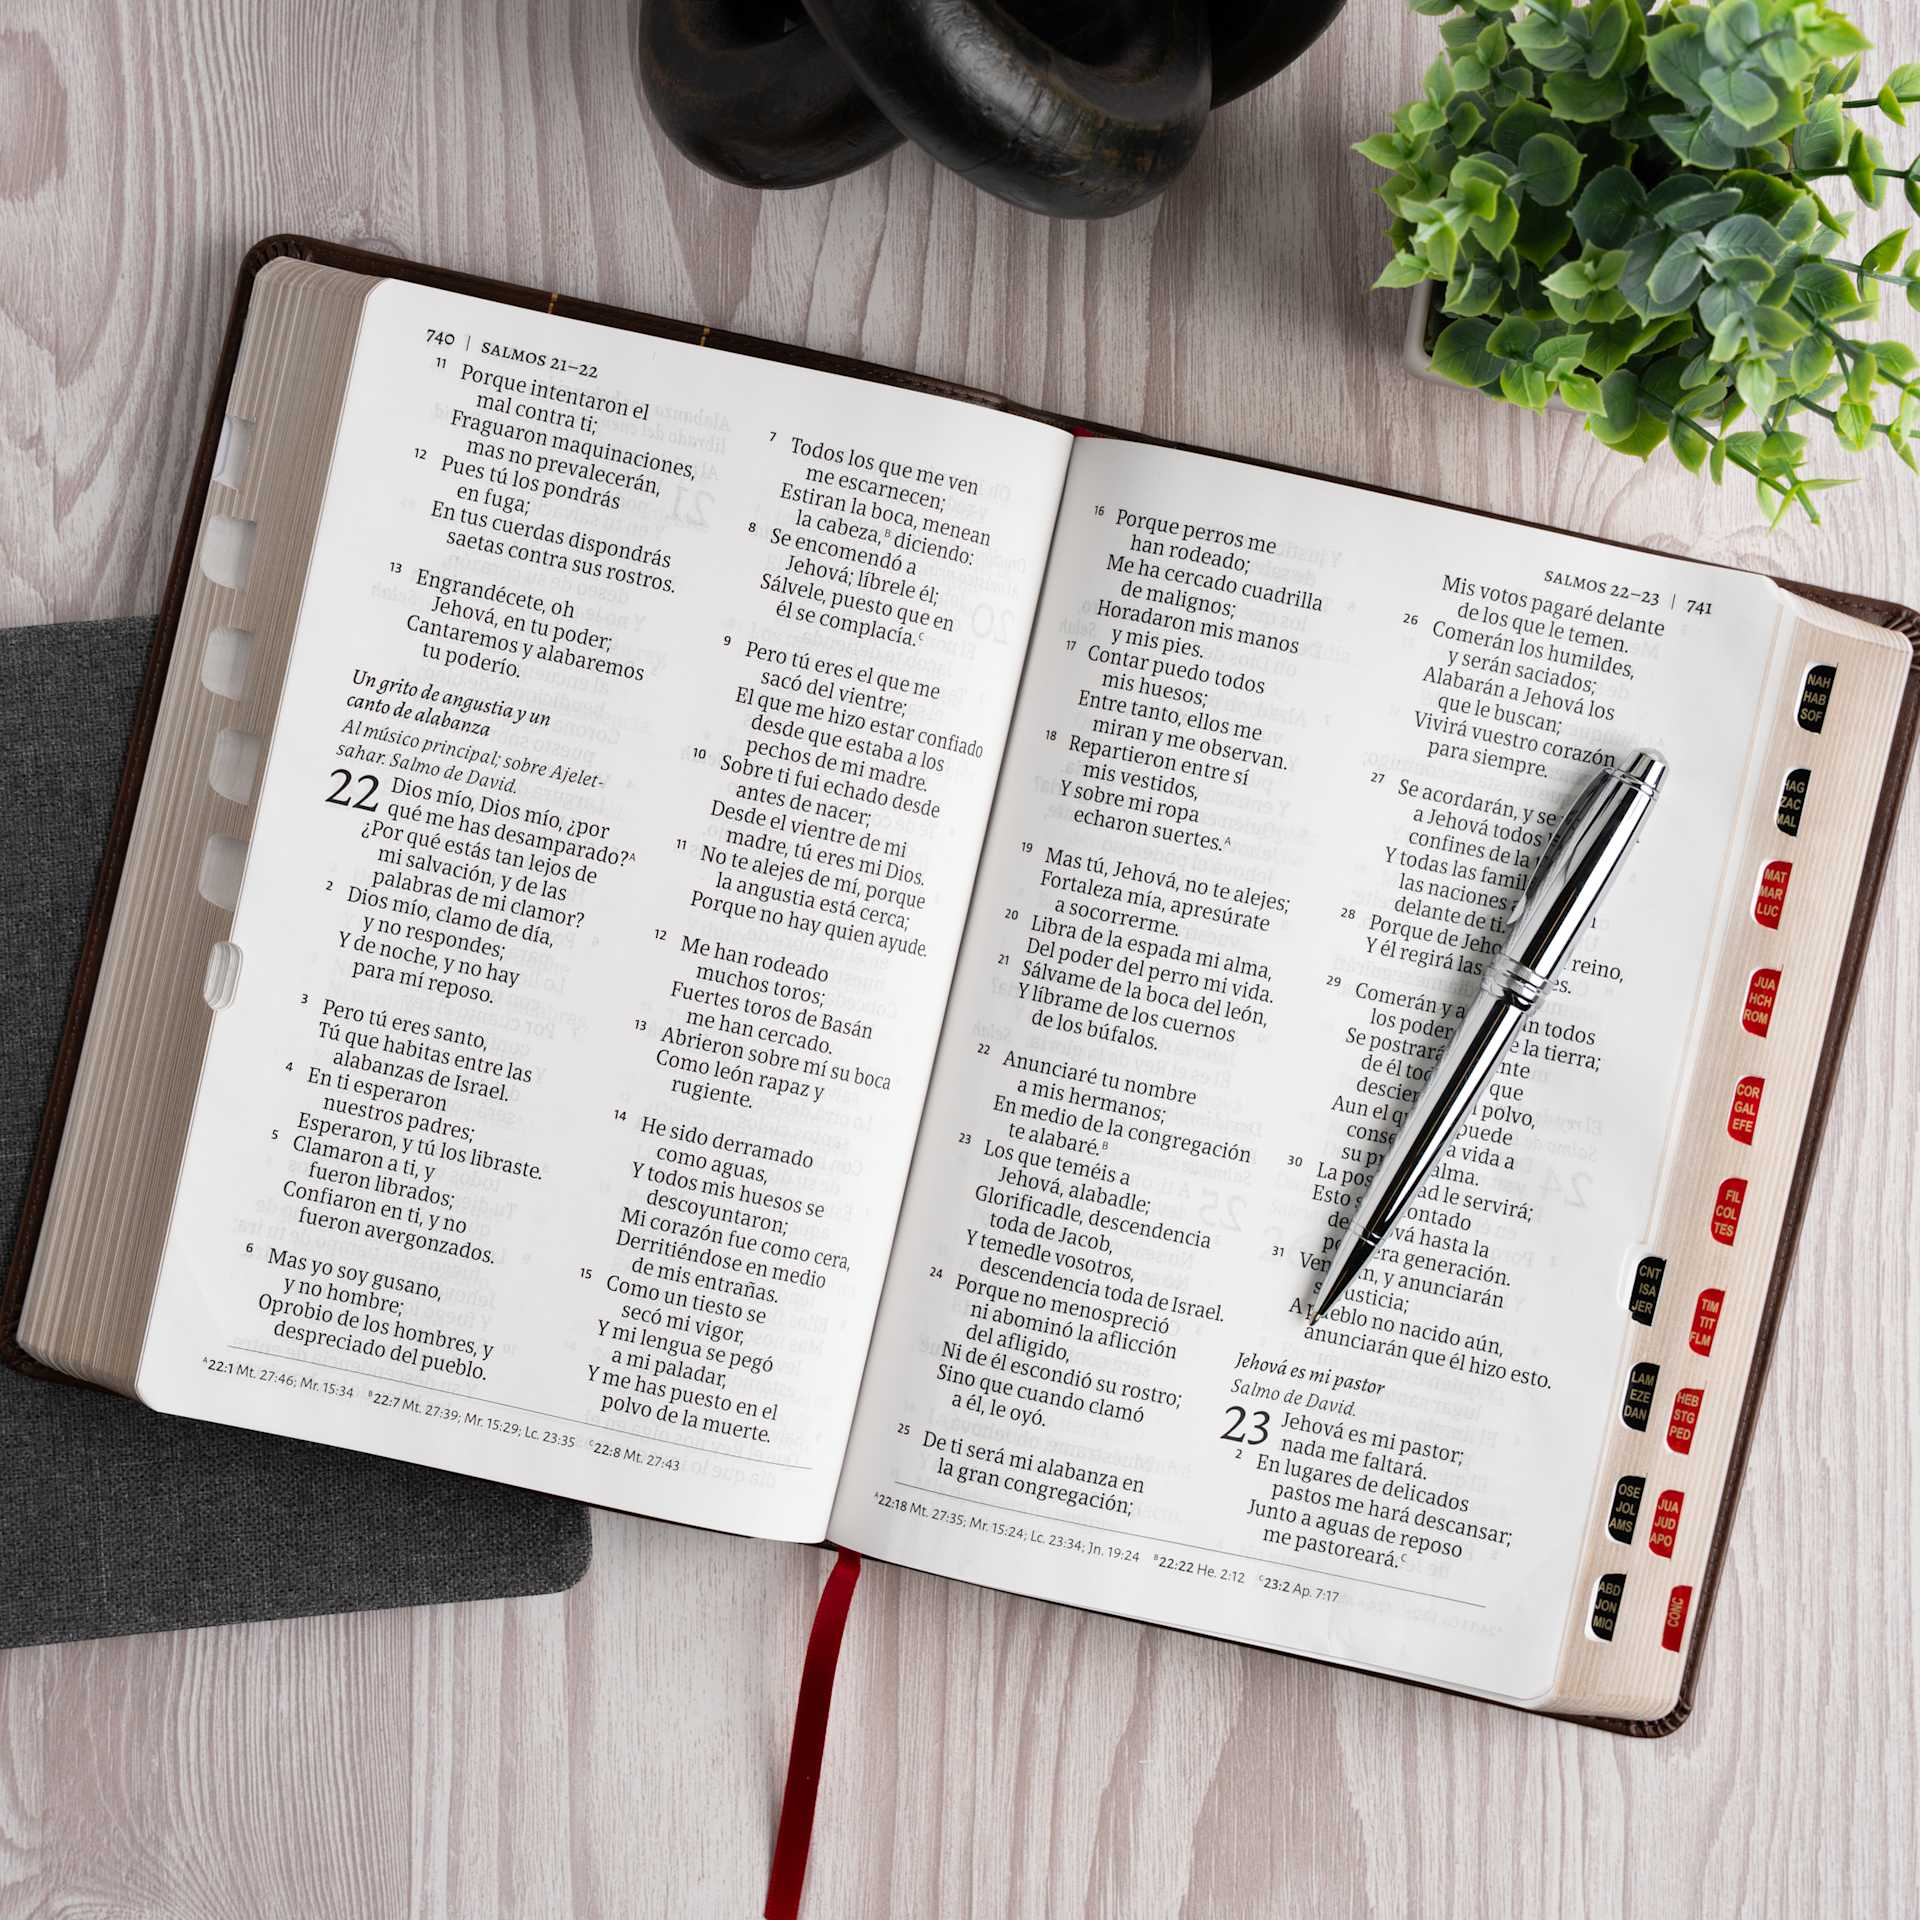 740 | SALMOS 21–22
11 Porque intentaron el
mal contra ti;
Fraguaron maquinaciones,
mas no prevalecerán,
12 Pues tú los pondrás
en fuga;
En tus cuerdas dispondrás
saetas contra sus rostros.
13 Engrandécete, oh
Jehová, en tu poder;
Cantaremos y alabaremos
tu poderío.
Un grito de angustia y un
canto de alabanza
Al músico principal; sobre Ajelet-
sahar. Salmo de David.
22 Dios mío, Dios mío, ¿por
qué me has desamparado?A
¿Por qué estás tan lejos de
mi salvación, y de las
palabras de mi clamor?
2 Dios mío, clamo de día,
y no respondes;
Y de noche, y no hay
para mí reposo.
3 Pero tú eres santo,
Tú que habitas entre las
alabanzas de Israel.
4 En ti esperaron
nuestros padres;
Esperaron, y tú los libraste.
5 Clamaron a ti, y
fueron librados;
Confiaron en ti, y no
fueron avergonzados.
6 Mas yo soy gusano,
y no hombre;
Oprobio de los hombres, y
despreciado del pueblo.
7 Todos los que me ven
me escarnecen;
Estiran la boca, menean
la cabeza,B diciendo:
8 Se encomendó a
Jehová; líbrele él;
Sálvele, puesto que en
él se complacía.C
9 Pero tú eres el que me
sacó del vientre;
El que me hizo estar confiado
desde que estaba a los
pechos de mi madre.
10 Sobre ti fui echado desde
antes de nacer;
Desde el vientre de mi
madre, tú eres mi Dios.
11 No te alejes de mí, porque
la angustia está cerca;
Porque no hay quien ayude.
12 Me han rodeado
muchos toros;
Fuertes toros de Basán
me han cercado.
13 Abrieron sobre mí su boca
Como león rapaz y
rugiente.
14 He sido derramado
como aguas,
Y todos mis huesos se
descoyuntaron;
Mi corazón fue como cera,
Derritiéndose en medio
de mis entrañas.
15 Como un tiesto se
secó mi vigor,
Y mi lengua se pegó
a mi paladar,
Y me has puesto en el
polvo de la muerte.
A22:1 Mt. 27:46; Mr. 15:34 B22:7 Mt. 27:39; Mr. 15:29; Lc. 23:35 C22:8 Mt. 27:43
SALMOS 22–23 | 741
16 Porque perros me
han rodeado;
Me ha cercado cuadrilla
de malignos;
Horadaron mis manos
y mis pies.
17 Contar puedo todos
mis huesos;
Entre tanto, ellos me
miran y me observan.
18 Repartieron entre sí
mis vestidos,
Y sobre mi ropa
echaron suertes.A
19 Mas tú, Jehová, no te alejes;
Fortaleza mía, apresúrate
a socorrerme.
20 Libra de la espada mi alma,
Del poder del perro mi vida.
21 Sálvame de la boca del león,
Y líbrame de los cuernos
de los búfalos.
22 Anunciaré tu nombre
a mis hermanos;
En medio de la congregación
te alabaré.B
23 Los que teméis a
Jehová, alabadle;
Glorificadle, descendencia
toda de Jacob,
Y temedle vosotros,
descendencia toda de Israel.
24 Porque no menospreció
ni abominó la aflicción
del afligido,
Ni de él escondió su rostro;
Sino que cuando clamó
a él, le oyó.
25 De ti será mi alabanza en
la gran congregación;
Mis votos pagaré delante
de los que le temen.
26 Comerán los humildes,
y serán saciados;
Alabarán a Jehová los
que le buscan;
Vivirá vuestro corazón
para siempre.
27 Se acordarán, y se
a Jehová todos
confines de la
Y todas las
las naciones
delante de ti.
28 Porque de reino,
Y él regirá las
29 Comerán y todos
los la tierra;
Se
de él
que
polvo,
Aun el puede
a vida a
su alma.
30 La le servirá;
Esto
hasta la
generación.
31 y anunciarán
A no nacido aún,
anunciarán que él hizo esto.
Jehová es mi pastor
Salmo de David.
23 Jehová es mi pastor;
nada me faltará.
2 En lugares de delicados
pastos me hará descansar;
Junto a aguas de reposo
me pastoreará.C
A22:18 Mt. 27:35; Mr. 15:24; Lc. 23:34; Jn. 19:24 B22:22 He. 2:12 C23:2 Ap. 7:17
CNT
ISA
JER
LAM
EZE
DAN
OSE
JOL
AMS
ABD
JON
MIQ
NAH
HAB
SOF
HAG
ZAC
MAL
MAT
MAR
LUC
JUA
HCH
ROM
COR
GAL
EFE
FIL
COL
TES
TIM
TIT
FLM
HEB
STG
PED
JUA
JUD
APO
CONC